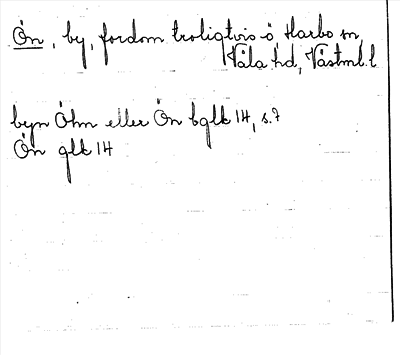 Ön, by, fordom troligtvis ö Harbo sn,
Våla hd, Västml. l
byn Öhn eller Ön bglk 14, s. 7
Ön glk 14